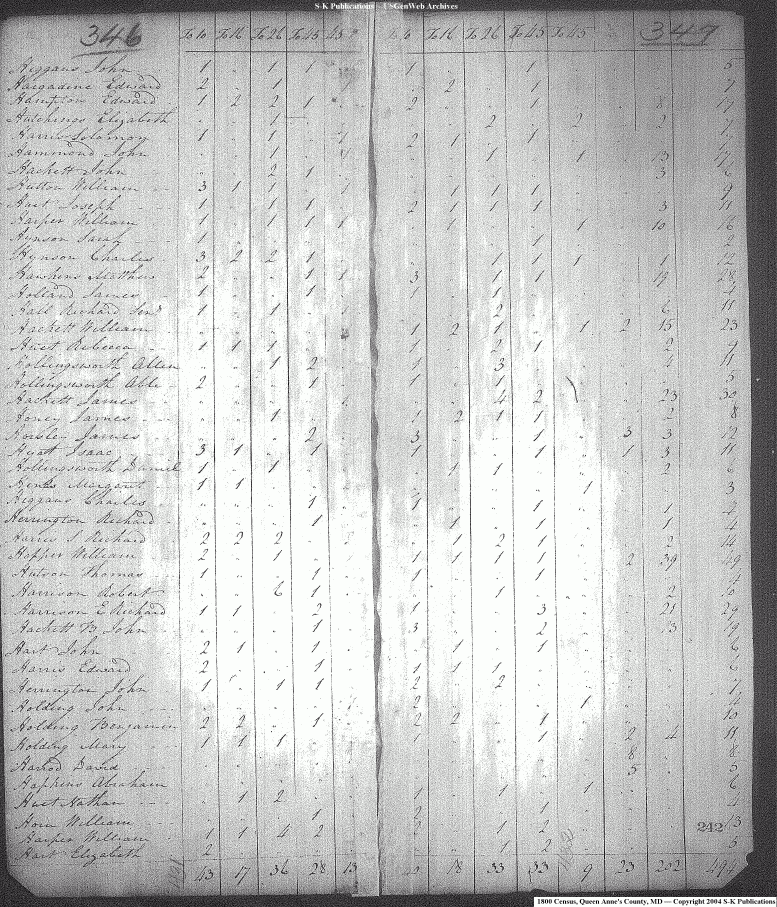 S-K Publications — USGenWeb Archives
346 To 10 To 16 To 26 To 45 To 16 To 26 To 45 To 45 347
Higgans John 1 . 1 1 1 1 5
Hargadine Edward 2 . 1 2 1 7
Hampton Edward 1 2 2 1 2 1 8
Hutchings Elizabeth 1 2 2 2
Harris Solomon 1 . 1 2 1 1
Hammond John 1 1 1 13
Hackett John 2 1 3 6
Hutton William 3 1 1 1 1 1 9
Hust Joseph 1 1 1 2 1 1 1 3 11
Harper William 1 1 1 1 1 1 10 16
Hynson 1 1 2
Hynson Charles 3 2 2 1 1 1 1 1 12
Hawkins Matthew 2 1 1 3 1 1 19 28
Holland James 1 1 1 1 4
Hall Richard Senr 1 1 2 6 11
Hackett William 1 2 1 1 2 15 23
Hust Rebecca 1 1 1 1 2 1 2 9
Hollingsworth Allen 1 2 1 3 4 11
Hollingsworth Able 2 1 1 1 5
Hackett James 4 2 23 30
Honey James 1 1 2 1 1 2 8
James 2 3 1 3 3 12
Hyatt Isaac 3 1 1 1 1 1 3 11
Hollingsworth Daniel 1 1 1 1 2 6
Margaret 1 1 1 3
Higgans Charles 1 1 1 1 4
Herrington Richard 1 1 1 1 4
Harris S Richard 2 2 2 1 2 2 14
Hopper William 2 1 1 1 1 2 39 49
Hutson Thomas 1 1 1 1 4
Harrison Robert 6 1 1 2 10
Harrison E Richard 1 1 2 1 3 21 29
Hackett B John 1 3 2 13 19
Hart John 2 1 1 1 1 6
Harris Edward 2 1 1 1 1 6
Herrington John 1 1 1 2 2 7
Holding John 2 1 4
Holding Benjamin 2 2 1 2 2 1 10
Holding Mary 1 1 1 1 1 2 4 11
Harrod David 8 8
5 5
Hopkins Abraham 1 1 1 6
Hust Nathan 1 2 4
Horn William 1 2 1
Harper William 1 1 4 2 2 1 2 13
Hart Elizabeth 2 1 2 5
242
43 17 36 28 13 18 33 33 9 23 202 494
1800 Census, Queen Anne's County, MD — Copyright 2004 S-K Publications